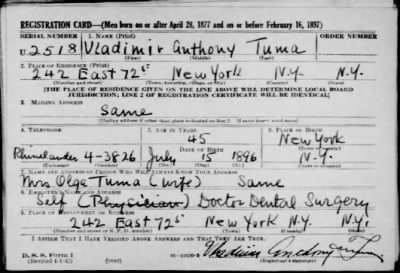 REGISTRATION CARD—(Men born on or after April 28, 1877 and on or before February 16, 1897)
SERIAL NUMBER 1. NAME (Print) ORDER NUMBER
U 2518 Vladimir Anthony Tuma
(First) (Middle) (Last)
2. PLACE OF RESIDENCE (Print)
242 East 72 St New York N.Y. N.Y.
(Number and street) (Town, township, village, or city) (County) (State)
[THE PLACE OF RESIDENCE GIVEN ON THE LINE ABOVE WILL DETERMINE LOCAL BOARD
JURISDICTION; LINE 2 OF REGISTRATION CERTIFICATE WILL BE IDENTICAL]
3. MAILING ADDRESS
Same
(Mailing address if other than place indicated on line 2. If same insert word same)
4. TELEPHONE 5. AGE IN YEARS 6. PLACE OF BIRTH
45 New York
DATE OF BIRTH
Rhinelander 4-3826 July 15 1896 N.Y.
7. NAME AND ADDRESS OF PERSON WHO WILL ALWAYS KNOW YOUR ADDRESS
Mrs Olga Tuma (wife) Same
8. EMPLOYER'S NAME AND ADDRESS
Self (Physician) Doctor Dental Surgery
9. PLACE OF EMPLOYMENT OR BUSINESS
242 East 72 St New York N.Y. N.Y.
(Number and street or R. F. D. number) (Town) (County) (State)
I AFFIRM THAT I HAVE VERIFIED ABOVE ANSWERS AND THAT THEY ARE TRUE.
D. S. S. Form 1 Vladimir Anthony Tuma
(Revised 4-1-42) (over) (Registrant's signature)